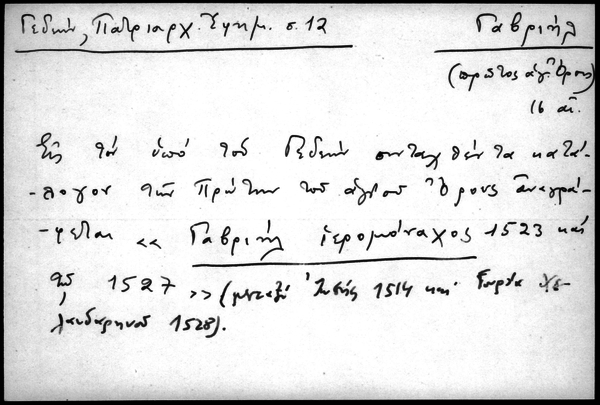 Γεδεών, Πατριαρχ. Ἐφημ. σ. 12
Γαβριήλ
(πρῶτος ἁγ. Ὄρους)
16 αἰ.
Εἰς τὸν ὑπὸ τοῦ Γεδεὼν συνταχθέντα κατά-
-λογον τῶν Πρώτων τοῦ ἁγίου Ὄρους ἀναγρά-
-φεται «Γαβριὴλ ἱερομόναχος 1523 καὶ
τῷ 1527» (μεταξὺ 1514 καὶ
λανδαρηνοῦ 1528).